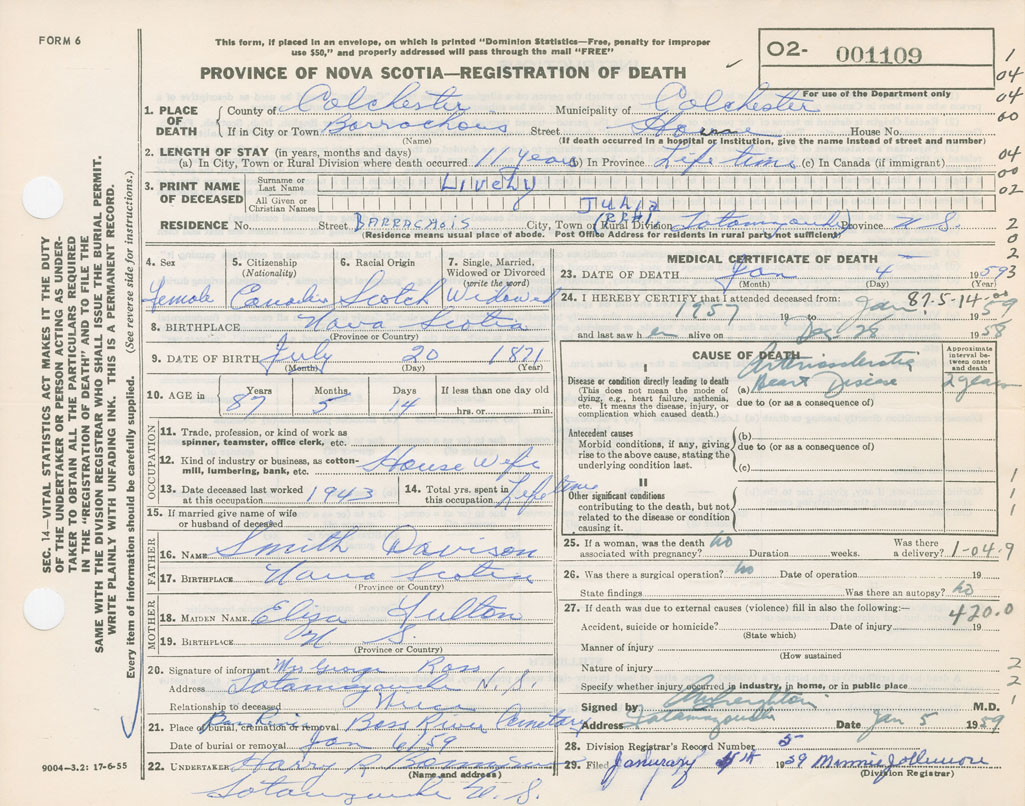 FORM 6
This form, if placed in an envelope, on which is printed "Dominion Statistics—Free, penalty for improper
use $50," and properly addressed will pass through the mail "FREE"
O2- 001109
For use of the Department only
PROVINCE OF NOVA SCOTIA—REGISTRATION OF DEATH
1. PLACE OF DEATH
County of Colchester Municipality of Colchester
If in City or Town Barrachois Street Home House No.
(Name) (If death occurred in a hospital or institution, give the name instead of street and number)
2. LENGTH OF STAY (in years, months and days)
(a) In City, Town or Rural Division where death occurred 11 years (b) In Province Life time (c) In Canada (if immigrant)
3. PRINT NAME OF DECEASED
Surname or Last Name Lively
All Given or Christian Names Julia
RESIDENCE No. Street BARRACHOIS City, Town or Rural Division (RR#1 Tatamagouche) Province N.S.
(Residence means usual place of abode. Post Office Address for residents in rural parts not sufficient)
4. Sex 5. Citizenship 6. Racial Origin 7. Single, Married,
(Nationality) Widowed or Divorced
(write the word)
Female Canadian Scotch Widowed
8. BIRTHPLACE Nova Scotia
(Province or Country)
9. DATE OF BIRTH July 20 1871
(Month) (Day) (Year)
10. AGE in Years Months Days If less than one day old
87 5 14 hrs. or min.
OCCUPATION
11. Trade, profession, or kind of work as
spinner, teamster, office clerk, etc.
12. Kind of industry or business, as cotton-
mill, lumbering, bank, etc. House Wife
13. Date deceased last worked
at this occupation 1943
14. Total yrs. spent in
this occupation Life time
15. If married give name of wife
or husband of deceased
FATHER
16. NAME Smith Davison
17. BIRTHPLACE Nova Scotia
(Province or Country)
MOTHER
18. MAIDEN NAME Eliza Fulton
19. BIRTHPLACE N S.
(Province or Country)
20. Signature of informant Mrs George Ross
Address Tatamagouche N. S.
Relationship to deceased Niece
21. Place of burial, cremation or removal Bass River Bass River Cemetary
Date of burial or removal Jan 6/59
22. UNDERTAKER Harry R
(Name and address)
Tatamagouche N. S.
9004—3.2: 17-6-55
MEDICAL CERTIFICATE OF DEATH
23. DATE OF DEATH Jan 4 1959
(Month) (Day) (Year)
24. I HEREBY CERTIFY that I attended deceased from: 87-5-14
1957 19 to Jan 1959
and last saw h er alive on Dec 28 1958
CAUSE OF DEATH
Approximate interval between onset and death
I
Disease or condition directly leading to death
(This does not mean the mode of
dying, e.g., heart failure, asthenia,
etc. It means the disease, injury, or
complication which caused death.)
(a) Arteriosclerotic
Heart Disease 2 years
due to (or as a consequence of)
Antecedent causes
Morbid conditions, if any, giving
rise to the above cause, stating the
underlying condition last.
(b)
due to (or as a consequence of)
(c)
II
Other significant conditions
contributing to the death, but not
related to the disease or condition
causing it.
25. If a woman, was the death no Was there
associated with pregnancy? Duration weeks. a delivery? 1-04-9
26. Was there a surgical operation? no Date of operation 19
State findings Was there an autopsy? no
27. If death was due to external causes (violence) fill in also the following:— 420.0
Accident, suicide or homicide? Date of injury 19
(State which)
Manner of injury
(How sustained
Nature of injury
Specify whether injury occurred in industry, in home, or in public place
Signed by Creighton M.D.
Address Tatamagouche Date Jan 5 1959
28. Division Registrar's Record Number 5
29. Filed Janurary 5th 1959 Minnie Jollimore
(Division Registrar)
SEC. 14—VITAL STATISTICS ACT MAKES IT THE DUTY
OF THE UNDERTAKER OR PERSON ACTING AS UNDER-
TAKER TO OBTAIN ALL THE PARTICULARS REQUIRED
IN THE "REGISTRATION OF DEATH" AND TO FILE THE
SAME WITH THE DIVISION REGISTRAR WHO SHALL ISSUE THE BURIAL PERMIT.
WRITE PLAINLY WITH UNFADING INK. THIS IS A PERMANENT RECORD.
Every item of information should be carefully supplied. (See reverse side for instructions.)
1
04
04
00
04
00
02
2
0
2
2
3
1
1
1
2
2
1